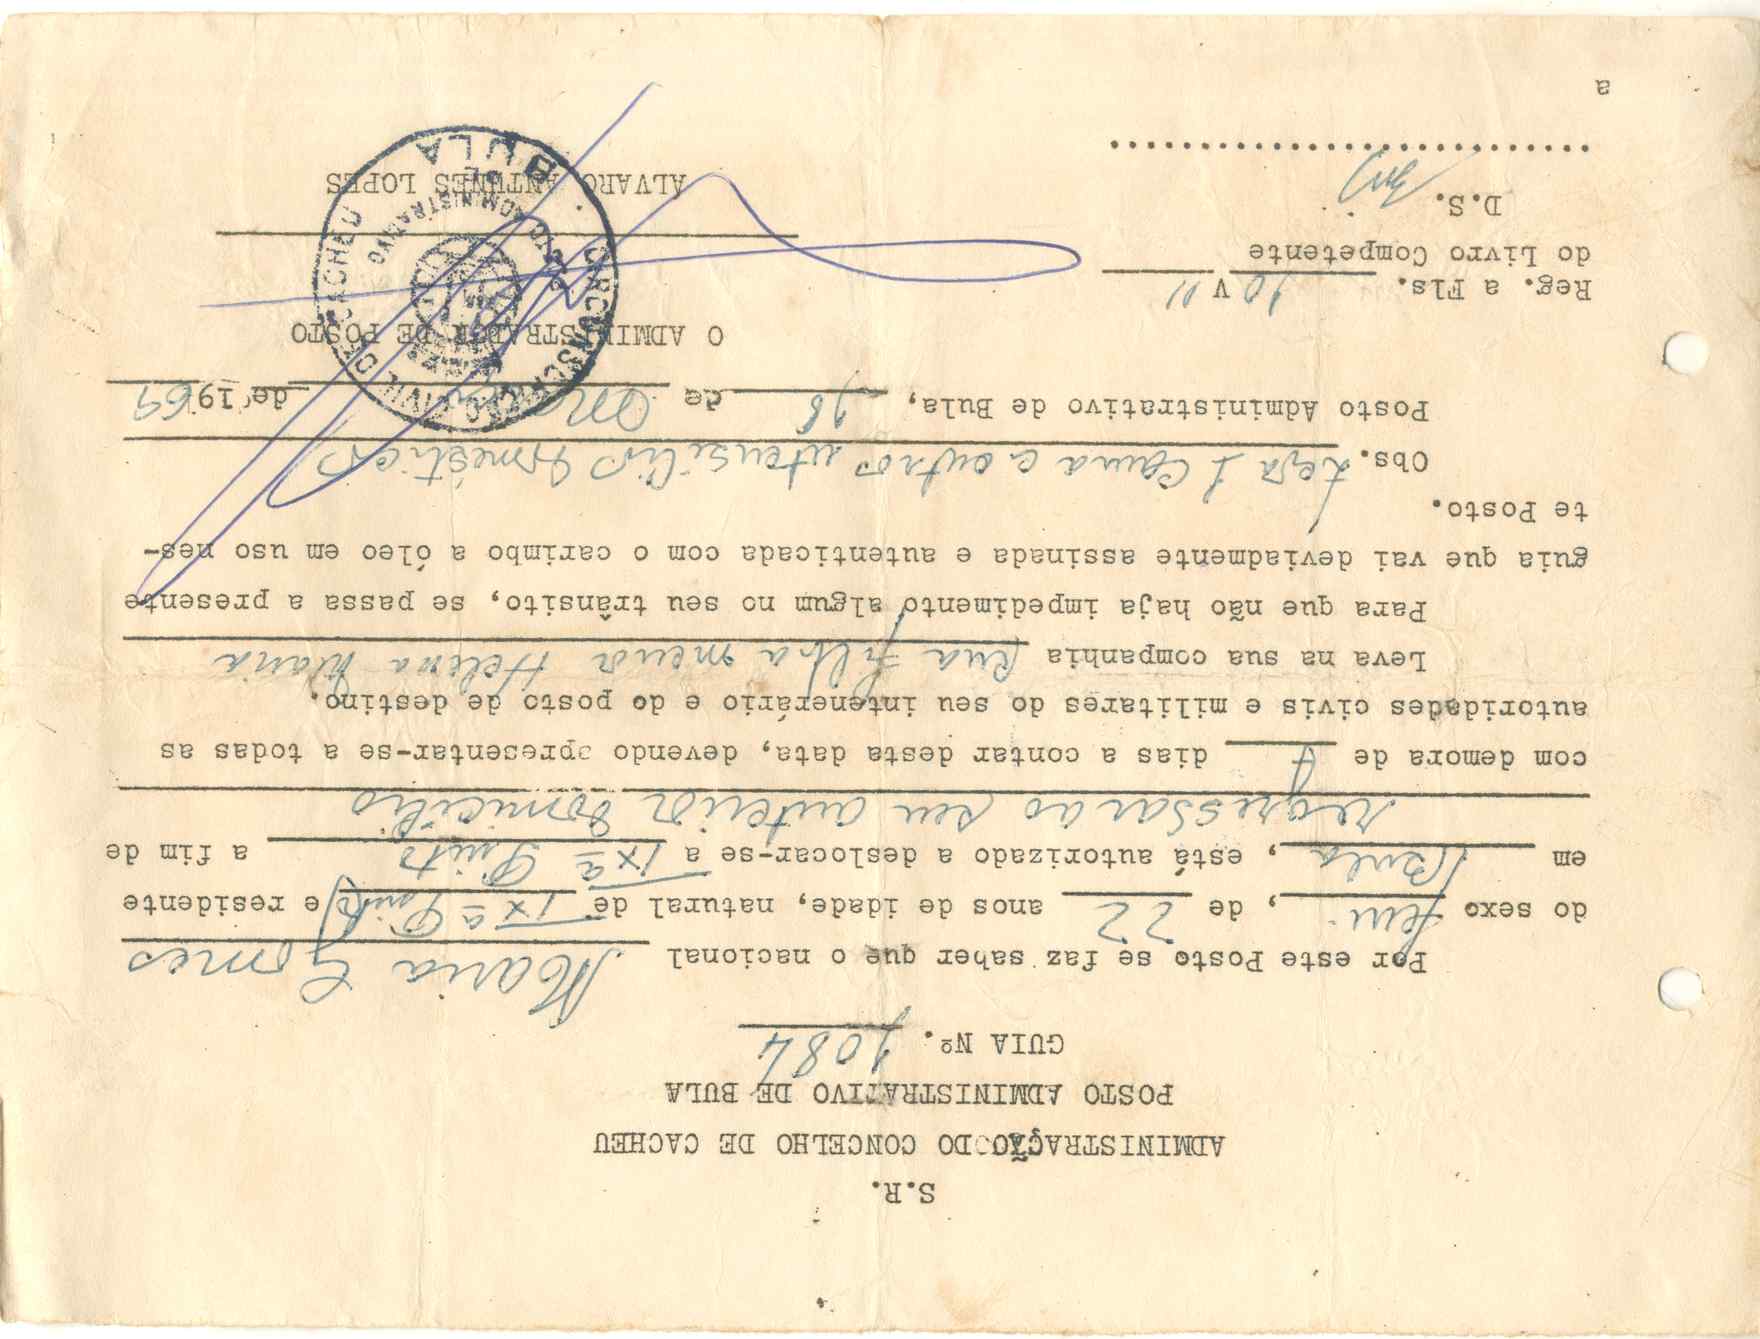 S.R.
ADMINISTRAÇÃO DO CONCELHO DE CACHEU
POSTO ADMINISTRATIVO DE BULA
GUIA Nº. 1084
Por este Posto se faz saber que o nacional Maria Gomes
do sexo fem., de 22 anos de idade, natural de Txª Pinto e residente
em Bula, está autorizado a deslocar-se a Txª Pinto a fim de
regressar ao seu anterior domicílio
com demora de dias a contar desta data, devendo apresentar-se a todas as
autoridades civis e militares do seu intenerário e do posto de destino.
Leva na sua companhia sua filha menor Helena Maria
Para que não haja impedimento algum no seu trânsito, se passa a presente
guia que vai deviadmente assinada e autenticada com o carimbo a óleo em uso nes-
te Posto.
Obs. Leva 1 cama e outros utensílios domésticos
Posto Administrativo de Bula, 18 de de 1969
O ADMINISTRADOR DE POSTO
Reg. a Fls. 10 V
do Livro Competente
D.S.
ALVARO ANTUNES LOPES
CIRCUNSCRIÇÃO CIVIL DE CACHEU
POSTO ADMINISTRATIVO
DE
BULA
a